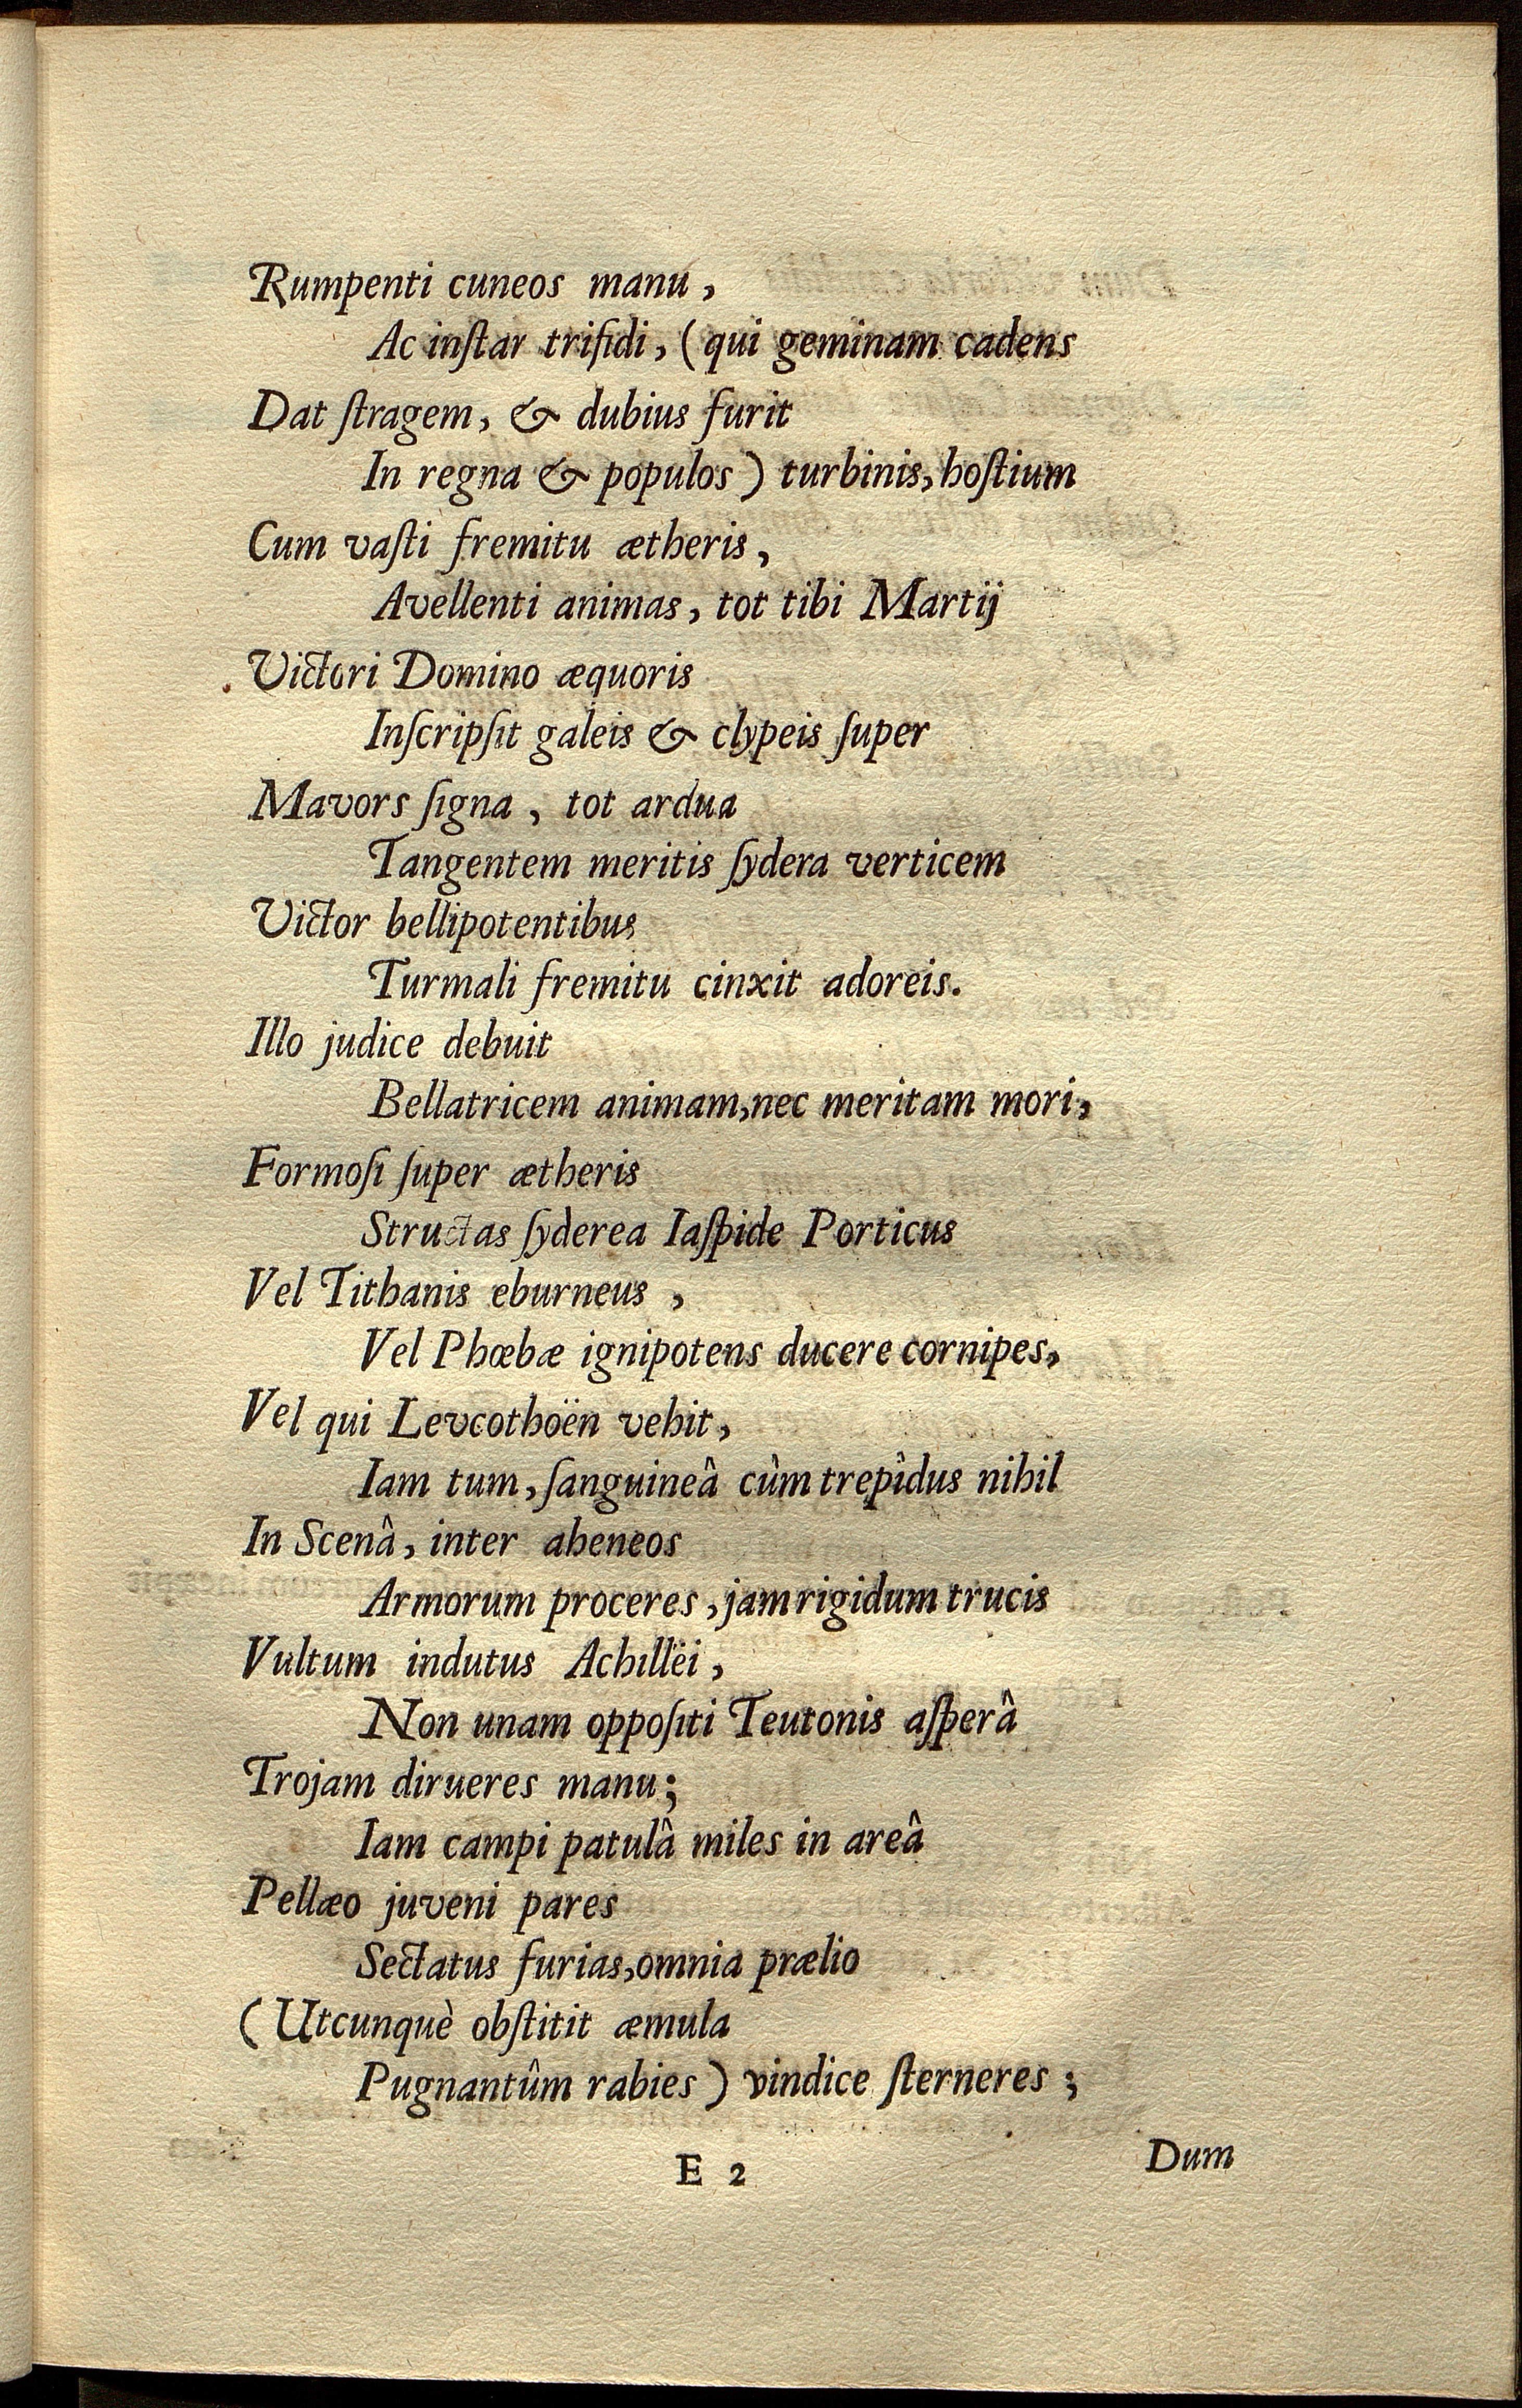 Rumpenti cuneos manu,
Ac inſtar trifidi, (qui geminam cadens
Dat ſtragem, & dubius furit
In regna & populos) turbinis, hoſtium
Cum vaſti fremitu ætheris,
Avellenti animas, tot tibi Martij
Victori Domino æquoris
Inſcripſit galeis & clypeis ſuper
Mavors ſigna, tot ardua
Tangentem meritis ſydera verticem
Victor bellipotentibus
Turmali fremitu cinxit adoreis.
Illo judice debuit
Bellatricem animam, nec meritam mori,
Formoſi ſuper ætheris
Structas ſyderea Iaſpide Porticus
Vel Tithanis eburneus,
Vel Phœbæ ignipotens ducere cornipes,
Vel qui Levcothoën vehit,
Iam tum, ſanguineâ cùm trepidus nihil
In Scenâ, inter aheneos
Armorum proceres, jam rigidum trucis
Vultum indutus Achillëi,
Non unam oppoſiti Teutonis aſperâ
Trojam dirueres manu;
Iam campi patulâ miles in areâ
Pellæo juveni pares
Sectatus furias, omnia prælio
(Utcunquè obſtitit æmula
Pugnantûm rabies) vindice ſterneres;
E 2
Dum